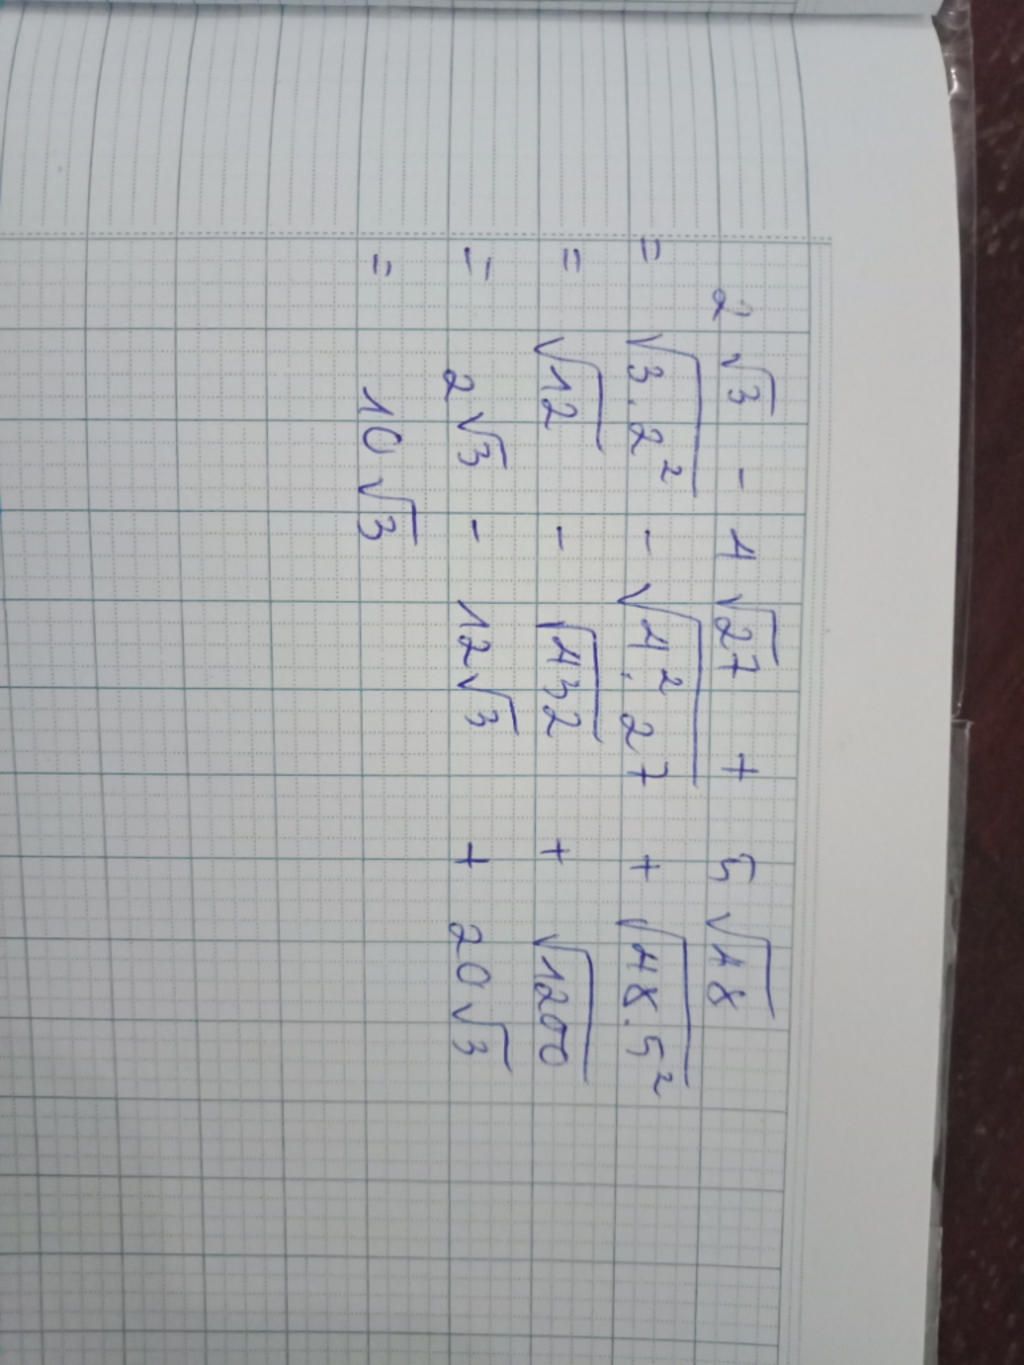 2√3 - 4√27 + 5√48
= √3.2² - √4².27 + √48.5²
= √12 - √432 + √1200
= 2√3 - 12√3 + 20√3
= 10√3